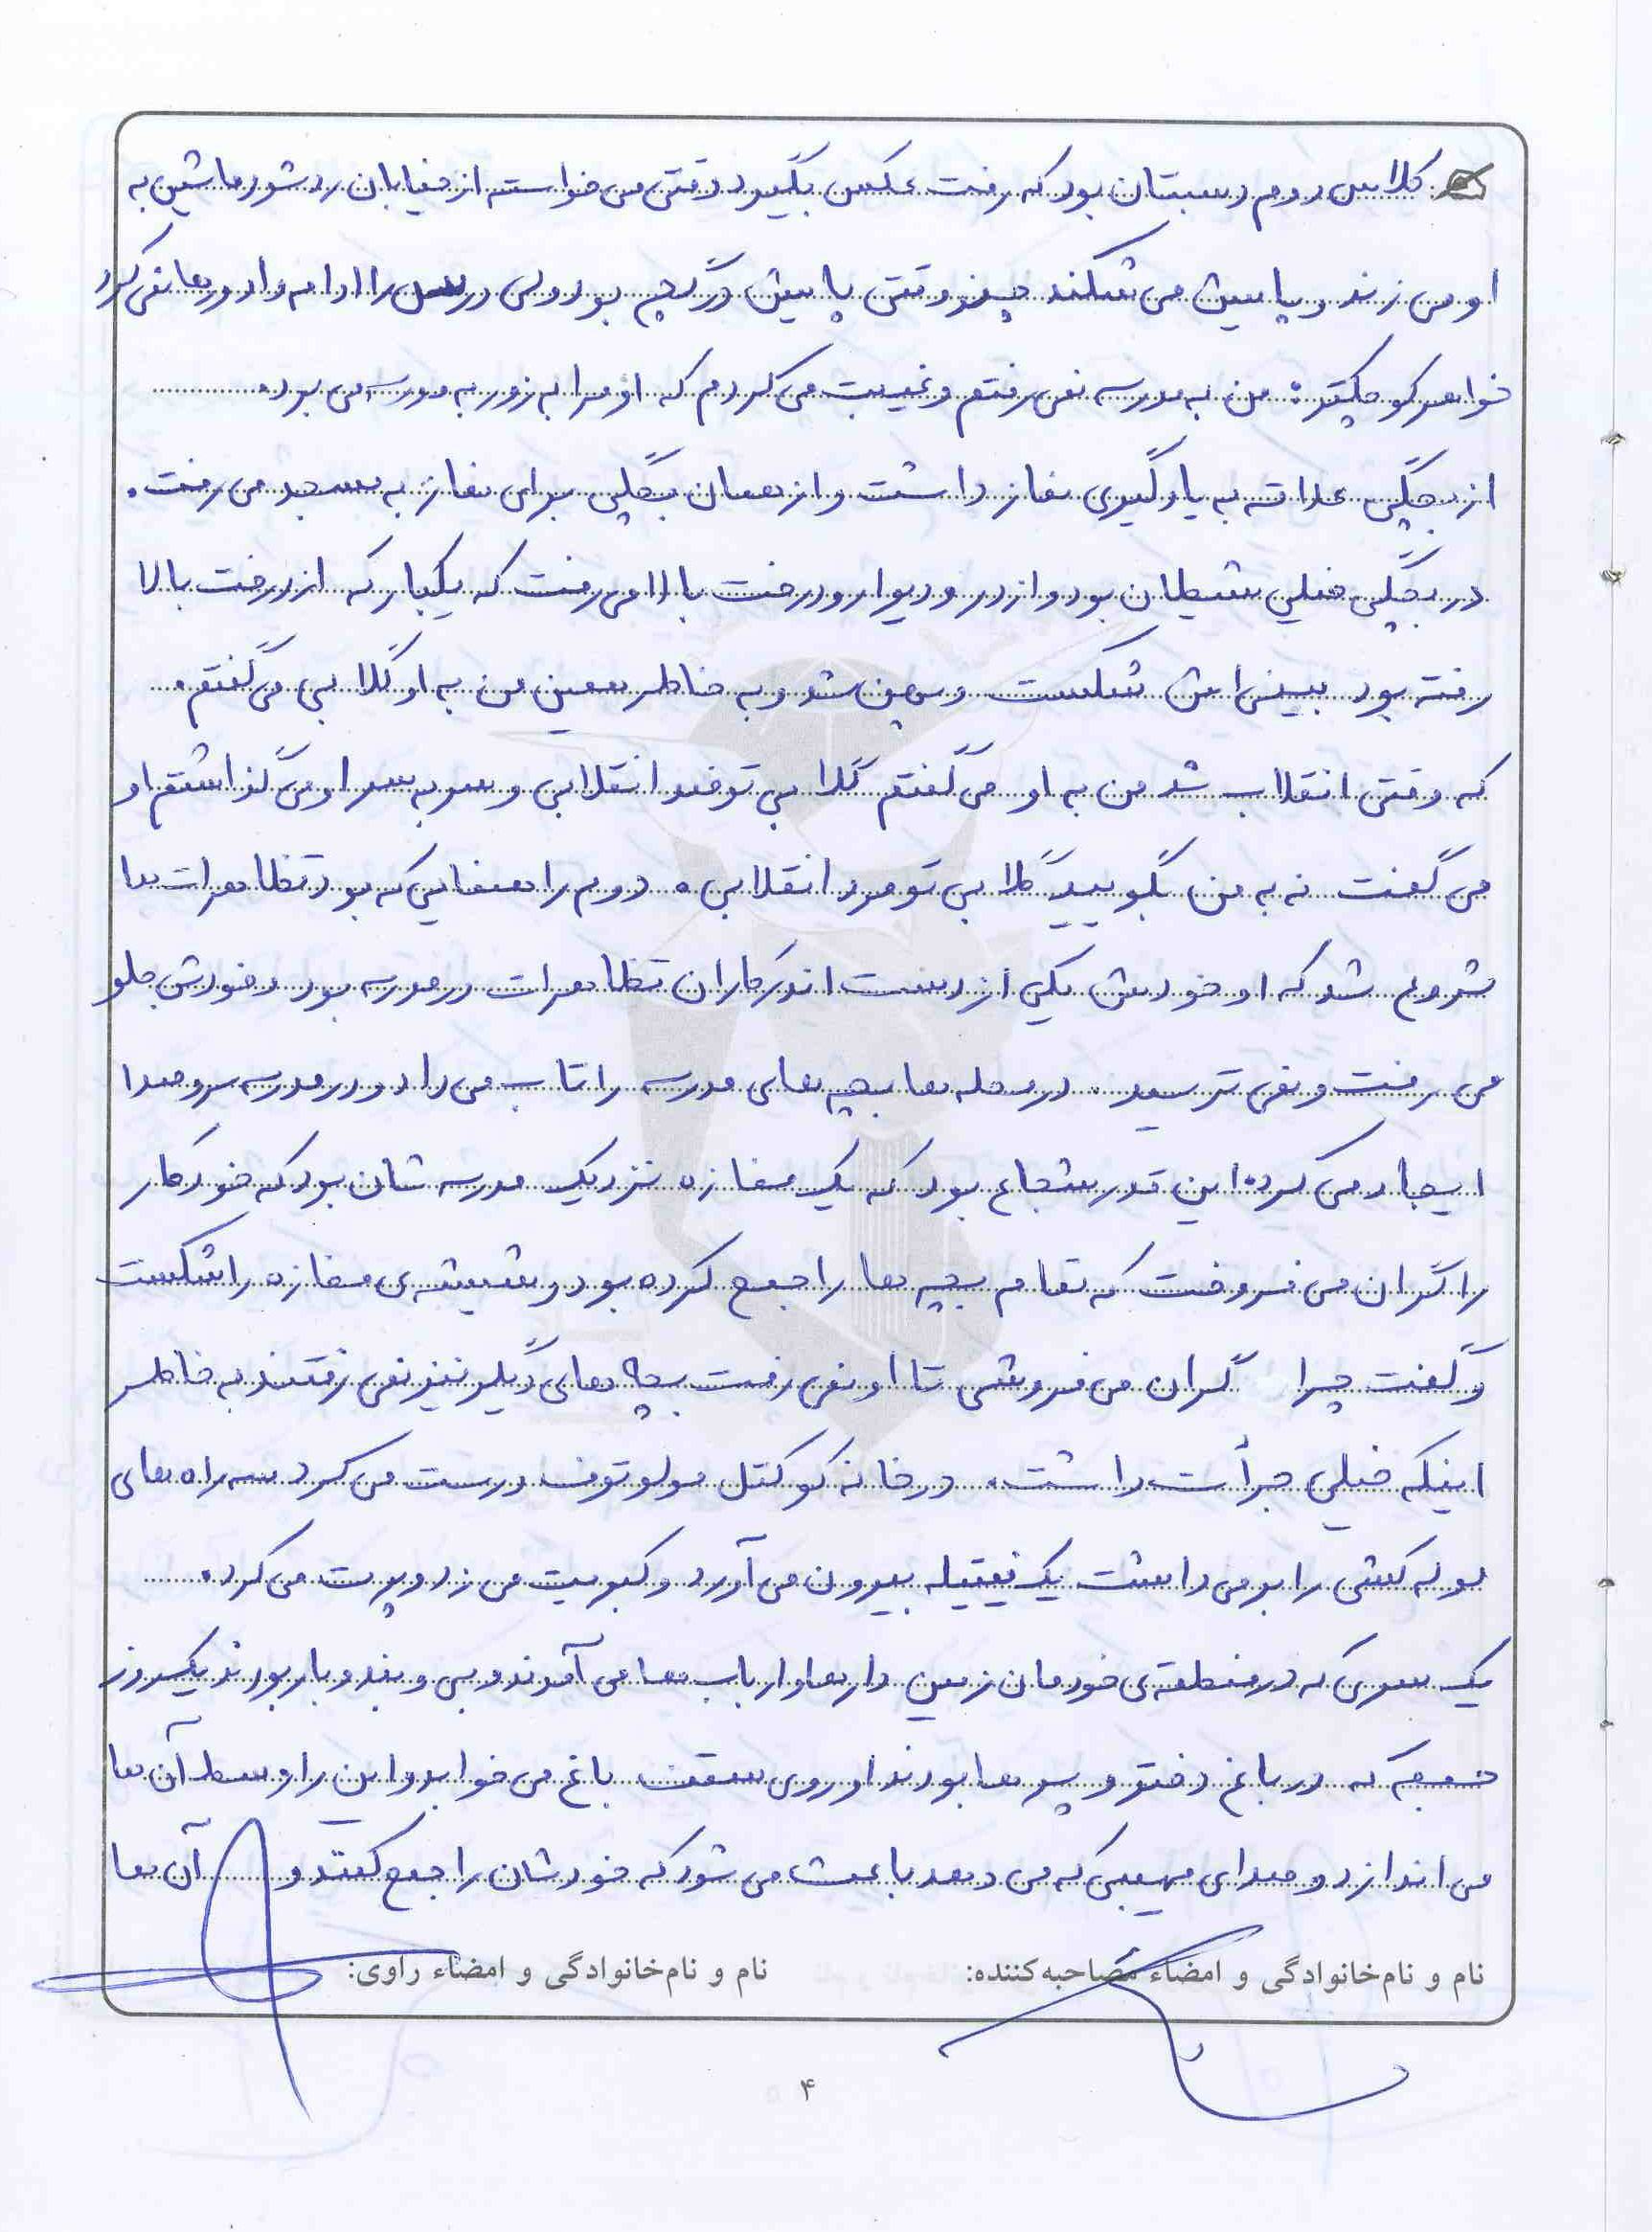 کلاس دوم دبستان بود که رفت عکس بگیرد وقتی می خواسته از خیابان رد شود ماشین به
او می زند و پایش می شکند چند وقتی پایش در گچ بود ولی درسش را ادامه داد و رها نمی کرد
خواهر کوچکتر: من به مدرسه نمی رفتم و غیبت می کردم که او مرا به زور به مدرسه می برد.
از بچگی علاقه به یادگیری نماز داشت و از همان بچگی برای نماز به مسجد می رفت.
در بچگی خیلی شیطان بود و از در و دیوار و درخت بالا می رفت که یکبار که از درخت بالا
رفته بود بینی اش شکست و پهن شد و به خاطر همین من به او گلابی می گفتم.
که وقتی انقلاب شد من به او می گفتم گلابی تو ضد انقلابی و سر به سر او می گذاشتم او
می گفت نه به من بگویید گلابی تو مرد انقلابی. دوم راهنمایی که بود تظاهرات ها
شروع شد که او خودش یکی از دست اندرکاران تظاهرات در مدرسه بود و خودش جلو
می رفت و نمی ترسید. در محله ها بچه های مدرسه را تاب می داد و در مدرسه سر و صدا
ایجاد می کرد. این قدر شجاع بود که یک مغازه نزدیک مدرسه شان بود که خودکار
را گران می فروخت که تمام بچه ها را جمع کرده بود و شیشه ی مغازه را شکست
و گفت چرا گران می فروشی تا او نمی رفت بچه های دیگر نیز نمی رفتند به خاطر
اینکه خیلی جرأت داشت. در خانه کوکتل مولوتوف درست می کرد سه راه های
لوله کشی را بر می داشت یک فیتیله بیرون می آورد و کبریت می زد و پرت می کرد.
یک سری که در منطقه ی خودمان زمین دارها و ارباب ها می آمدند و بی و بند و بار بودند یک روز
جمعه که در باغ دختر و پسر ها بودند او روی سقف باغ می خوابد و این را وسط آن ها
می اندازد و صدای مهیبی که می دهد باعث می شود که خودشان را جمع کنند و آن ها
نام و نام خانوادگی و امضاء مصاحبه کننده: نام و نام خانوادگی و امضاء راوی:
۴